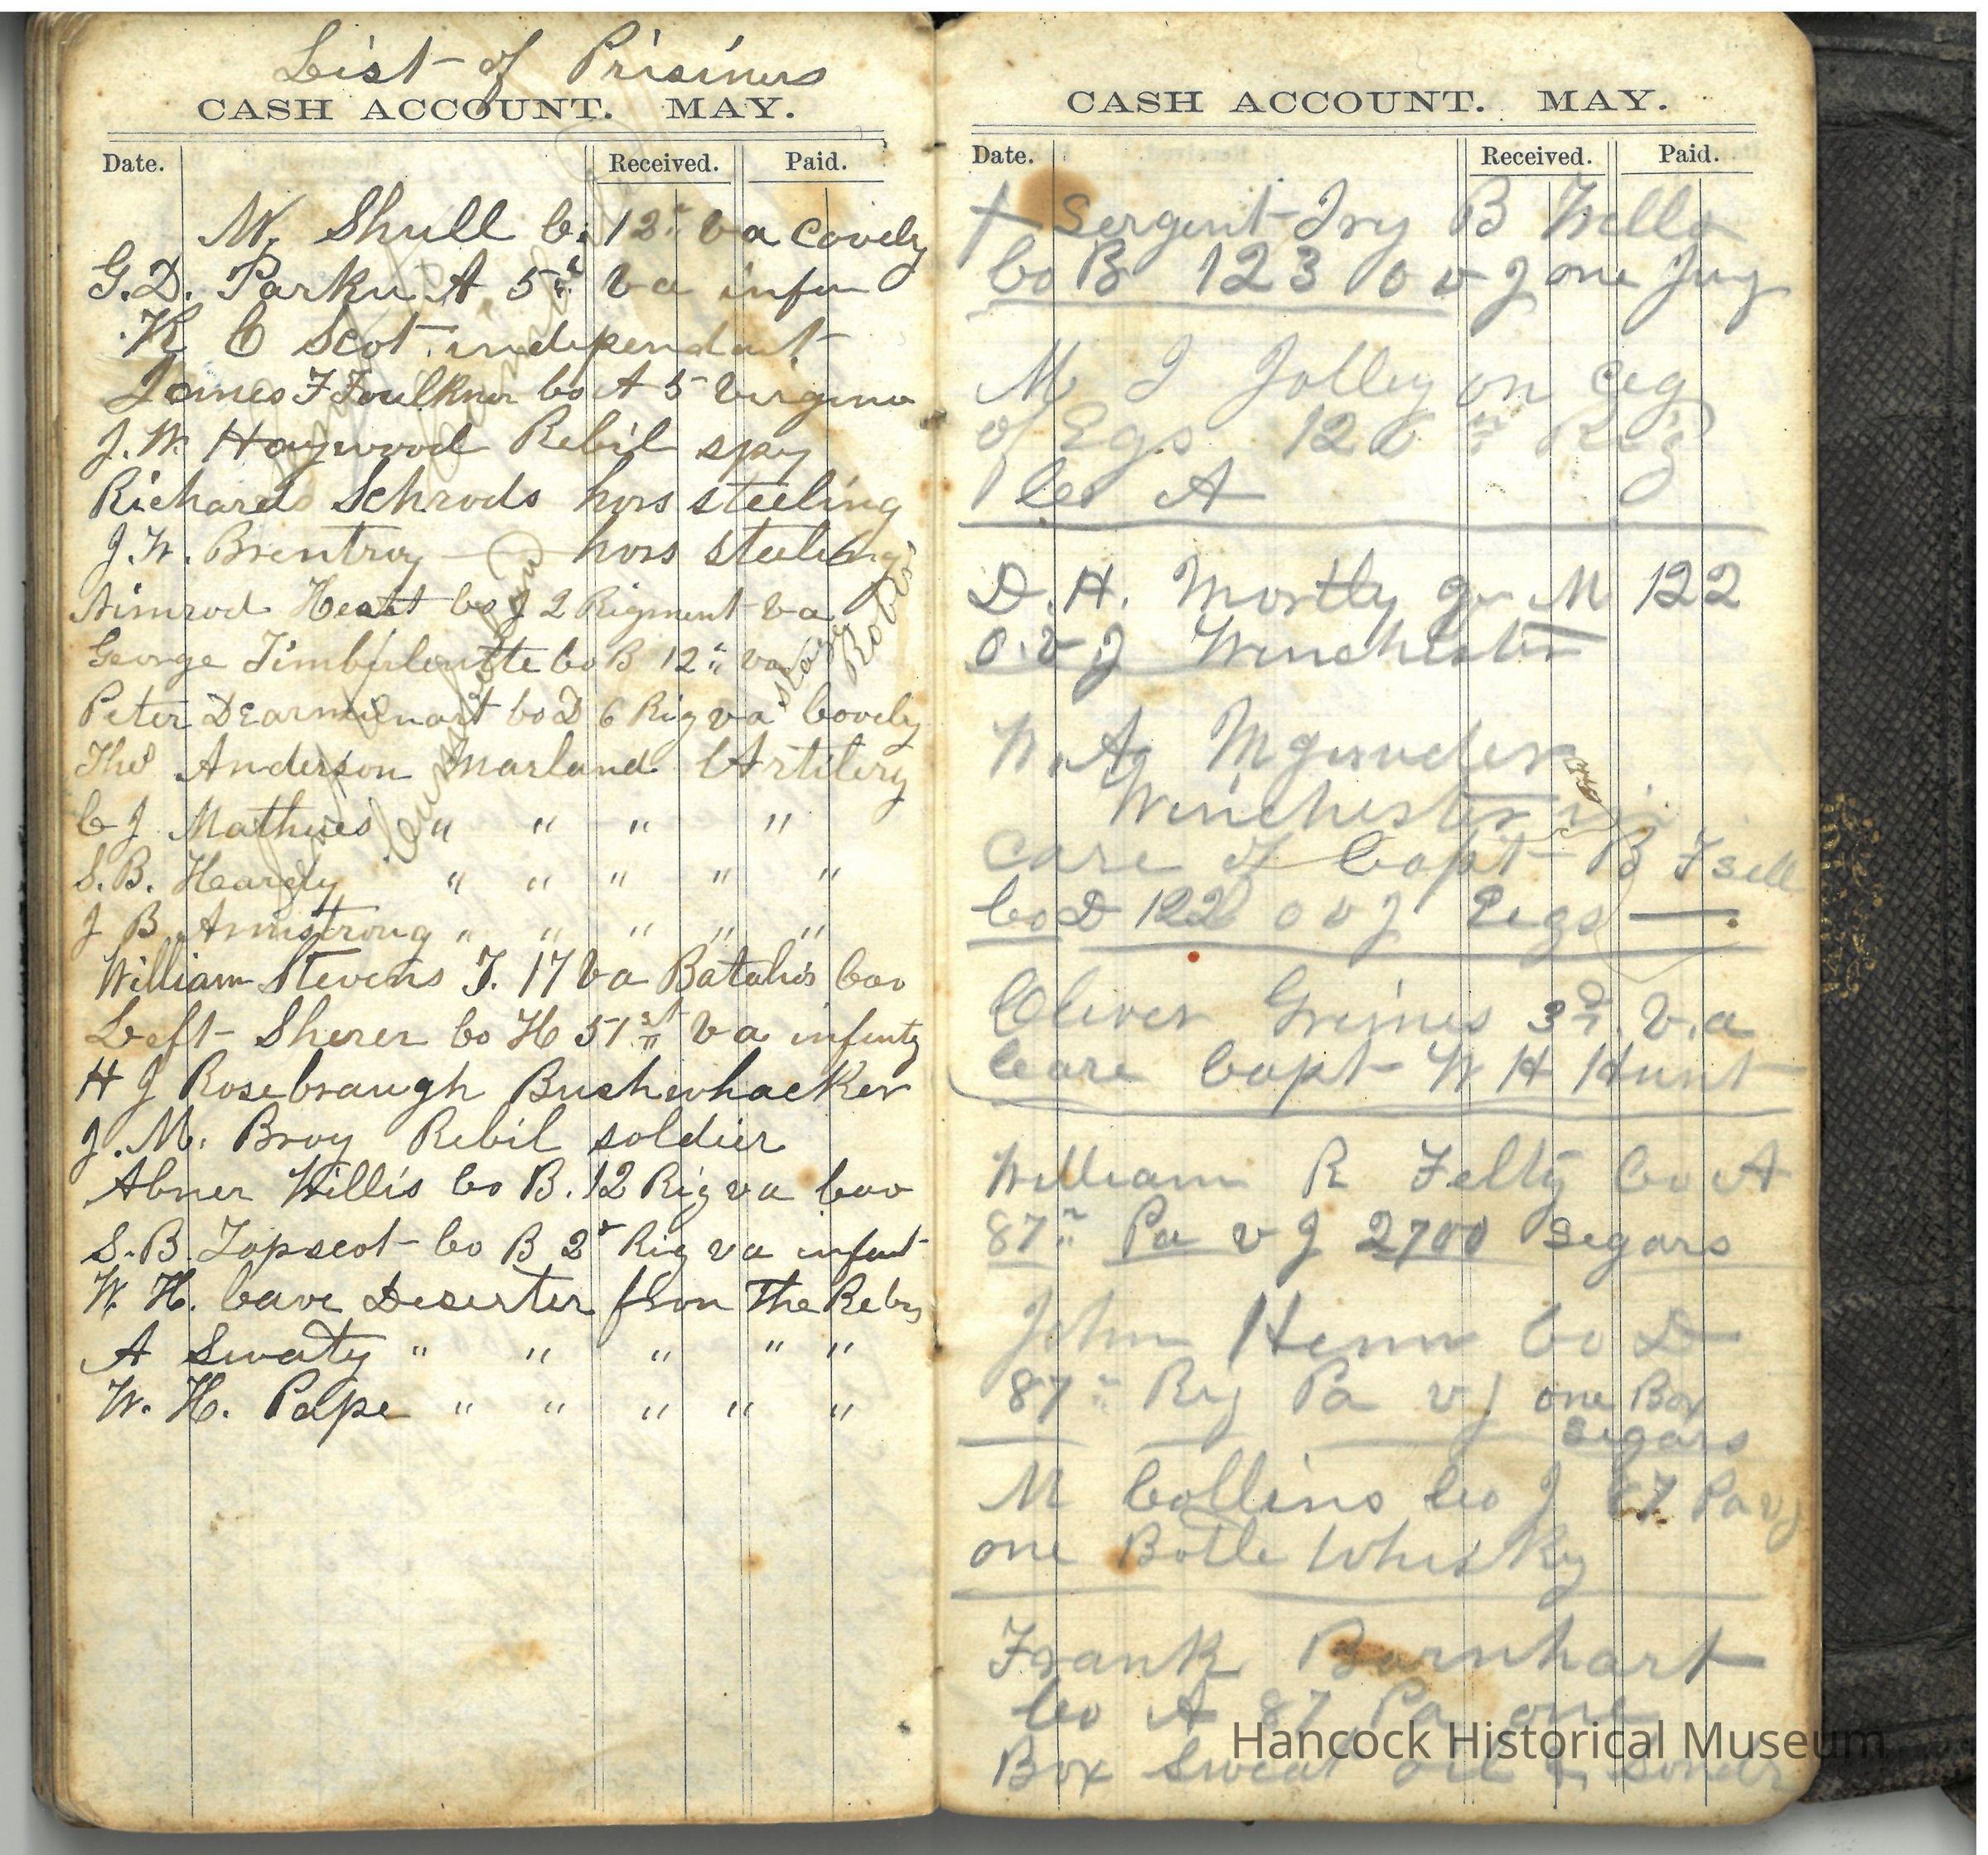 List of Prisiners
CASH ACCOUNT. MAY.
Date. Received. Paid.
M. Shull Co. 12" va Covely
G.D. Parku A 5" va infen
K C Scot independant
James F Foulkner Co A 5 Virginia
J.W. Haywood Rebil spy
Richards Schrods hors steeling
J.W. Brentroy hors steeling
Nimrod Co J 2 Rigment va
George Co B 12" va
stage Rober
Peter Co D 6 Rig va Covely
Tho Anderson Marland Artilery
C J Mathues " " " "
S.B. Heardy " " " " "
J B Armstrong " " " " "
William Stevens J. 17 va Batalis Cav
Left Sherer Co H 51st va infinty
H J Rosebraugh Bushwhacker
J. M. Broy Rebil soldier
Abner Willis Co B. 12 Rig va Cav
S.B. Topscot Co B 2d Rig va infant
W. H. Cave Deserter from The Rebs
A Swaty " " " " "
W. H. Pape " " " " "
CASH ACCOUNT. MAY.
Date. Received. Paid.
Sergent Ivy B Wells
Co B 123 O v J one Jug
M J Jolley on Ceg
of Egs 126 " Reg
Co A
D. H. Mortly M 122
O.V J Winchester
W. A.
Winchester
Care of Capt B F sell
Co D 122 O v J Cegs
Oliver Grimes 3d. V.a
Care Capt W H Hunt
William R Felty Co A
87" Pa v J 2700 Segars
John Henn Co D
87" Rig Pa v J one Box
Segars
M Collins Co J 87 Pa v J
one Botle Whisky
Frank Barnhart
Co A 87 Pa one
Box Sweat oil
Hancock Historical Museum